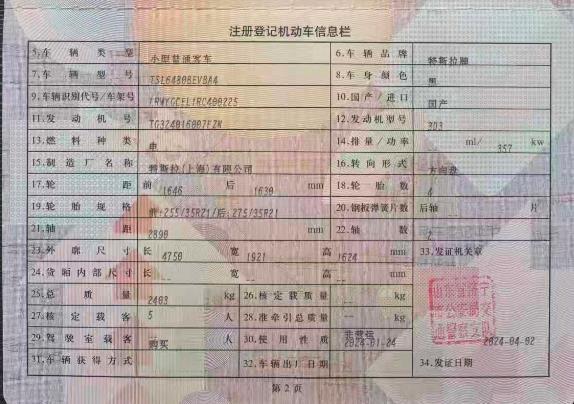 注册登记机动车信息栏
5.车辆类型 小型普通客车 6.车辆品牌 特斯拉牌
7.车辆型号 TSL6480BEVBA4 8.车身颜色 黑
9.车辆识别代号/车架号 LRWYGCEL1RC400225 10.国产/进口 国产
11.发动机号 TG324016007FZN 12.发动机型号 3D3
13.燃料种类 电 14.排量/功率 ml/ 357 kw
15.制造厂名称 特斯拉(上海)有限公司 16.转向形式 方向盘
17.轮距 前 1646 后 1630 mm 18.轮胎数 4
19.轮胎规格 前:255/35R21/后:275/35R21 20.钢板弹簧片数 后轴 片
21.轴距 2890 mm 22.轴数 2
23.外廓尺寸 长 4750 宽 1921 高 1624 mm 33.发证机关章
24.货厢内部尺寸 长 -- 宽 -- 高 -- mm
25.总质量 2403 kg 26.核定载质量 -- kg
27.核定载客 5 人 28.准牵引总质量 -- kg
29.驾驶室载客 -- 人 30.使用性质 非营运
31.车辆获得方式 购买 32.车辆出厂日期 2024-01-24 34.发证日期 2024-04-02
第2页